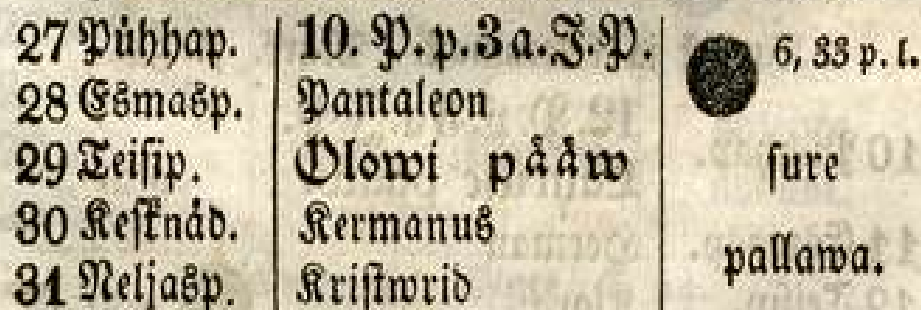 27 Pühhap. 10. P. p. 3 a. J. P. 6, 33 p. l.
28 Esmasp. Pantaleon
29 Teisip. Olowi pääw sure
30 Kesknäd. Kermanus
31 Neljasp. Kristwrid pallawa.